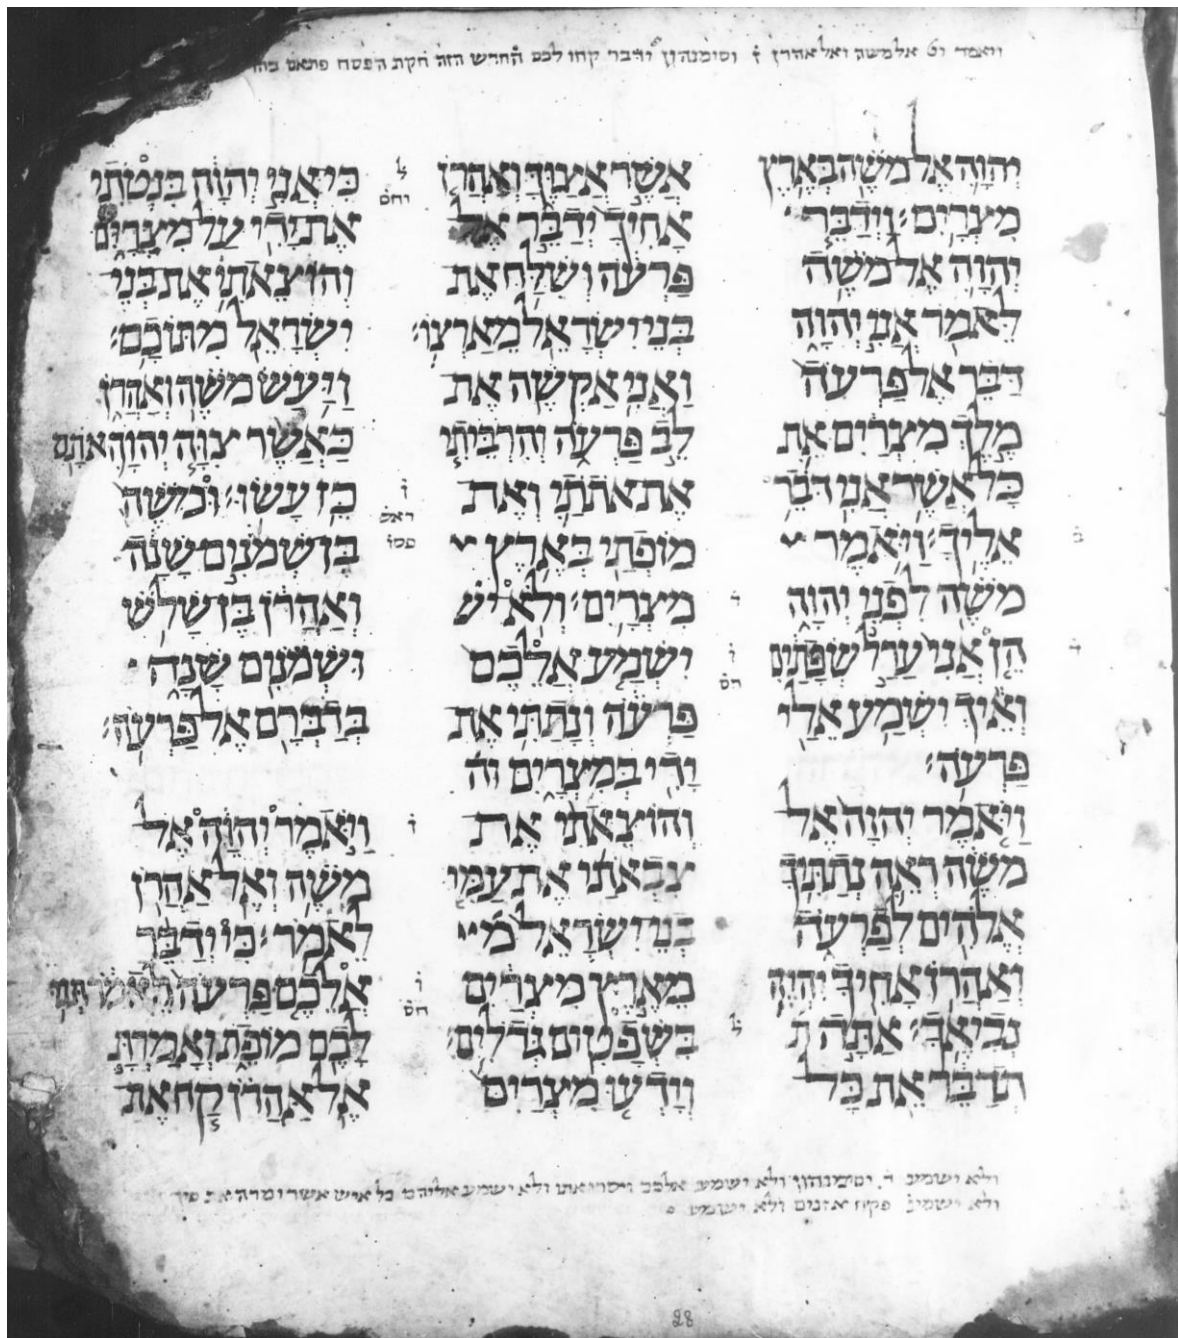 ויאמר יי אל משה ואל אהרן ז וסימנהון וידבר קחו לכם החדש הזה חקת הפסח פתאם
יְהוָ֛ה אֶל מֹשֶׁ֖ה בְּאֶ֥רֶץ
מִצְרָֽיִם׃ וַיְדַבֵּ֧ר
יְהוָ֛ה אֶל מֹשֶׁ֥ה
לֵּאמֹ֖ר אֲנִ֣י יְהוָ֑ה
דַּבֵּ֗ר אֶל פַּרְעֹה֙
מֶ֣לֶךְ מִצְרַ֔יִם אֵ֛ת
כָּל אֲשֶׁ֥ר אֲנִ֖י דֹּבֵ֥ר
אֵלֶֽיךָ׃ וַיֹּ֥אמֶר
מֹשֶׁ֖ה לִפְנֵ֣י יְהוָ֑ה
הֵ֤ן אֲנִי֙ עֲרַ֣ל שְׂפָתַ֔יִם
וְאֵ֕יךְ יִשְׁמַ֥ע אֵלַ֖י
פַּרְעֹֽה׃
וַיֹּ֤אמֶר יְהוָה֙ אֶל
מֹשֶׁ֔ה רְאֵ֛ה נְתַתִּ֥יךָ
אֱלֹהִ֖ים לְפַרְעֹ֑ה
וְאַהֲרֹ֥ן אָחִ֖יךָ יִהְיֶ֥ה
נְבִיאֶֽךָ׃ אַתָּ֣ה ת
תְדַבֵּ֔ר אֵ֖ת כָּל
אֲשֶׁ֣ר אֲצַוֶּ֑ךָּ וְאַהֲרֹ֤ן
אָחִ֙יךָ֙ יְדַבֵּ֣ר אֶל
פַּרְעֹ֔ה וְשִׁלַּ֥ח אֶת
בְּנֵי יִשְׂרָאֵ֖ל מֵאַרְצֽוֹ׃
וַאֲנִ֥י אַקְשֶׁ֖ה אֶת
לֵ֣ב פַּרְעֹ֑ה וְהִרְבֵּיתִ֧י
אֶת אֹתֹתַ֛י וְאֶת
מוֹפְתַ֖י בְּאֶ֥רֶץ
מִצְרָֽיִם׃ וְלֹֽא יִשׁ
יִשְׁמַ֤ע אֲלֵכֶם֙
פַּרְעֹ֔ה וְנָתַתִּ֥י אֶת
יָדִ֖י בְּמִצְרָ֑יִם וה
וְהוֹצֵאתִ֨י אֶת
צִבְאֹתַ֜י אֶת עַמִּ֤י
בְנֵֽי יִשְׂרָאֵל֙ מ
מֵאֶ֣רֶץ מִצְרַ֔יִם
בִּשְׁפָטִ֖ים גְּדֹלִֽים׃
וְיָדְע֤וּ מִצְרַ֙יִם֙
כִּֽי אֲנִ֣י יְהוָ֔ה בִּנְטֹתִ֥י
אֶת יָדִ֖י עַל מִצְרָ֑יִם
וְהוֹצֵאתִ֥י אֶת בְּנֵי
יִשְׂרָאֵ֖ל מִתּוֹכָֽם׃
וַיַּ֥עַשׂ מֹשֶׁ֖ה וְאַהֲרֹ֑ן
כַּאֲשֶׁ֨ר צִוָּ֧ה יְהוָ֛ה אֹתָ֖ם
כֵּ֥ן עָשֽׂוּ׃ וּמֹשֶׁה֙
בֶּן שְׁמֹנִ֣ים שָׁנָ֔ה
וְאַֽהֲרֹ֔ן בֶּן שָׁלֹ֥שׁ
וּשְׁמֹנִ֖ים שָׁנָ֑ה
בְּדַבְּרָ֖ם אֶל פַּרְעֹֽה׃
וַיֹּ֣אמֶר יְהוָ֔ה אֶל
מֹשֶׁ֥ה וְאֶֽל אַהֲרֹ֖ן
לֵאמֹֽר׃ כִּי֩ יְדַבֵּ֨ר
אֲלֵכֶ֤ם פַּרְעֹה֙ לֵאמֹ֔ר תְּנ֥וּ
לָכֶ֖ם מוֹפֵ֑ת וְאָמַרְתָּ֣
אֶֽל אַהֲרֹ֗ן קַ֧ח אֶֽת
ולא ישמע ד וסימנהון ולא ישמע אלכם ויסרו אתו ולא ישמע אליהם כל איש אשר ימרה את פיך
ולא ישמע פקח אזנים ולא ישמע
28